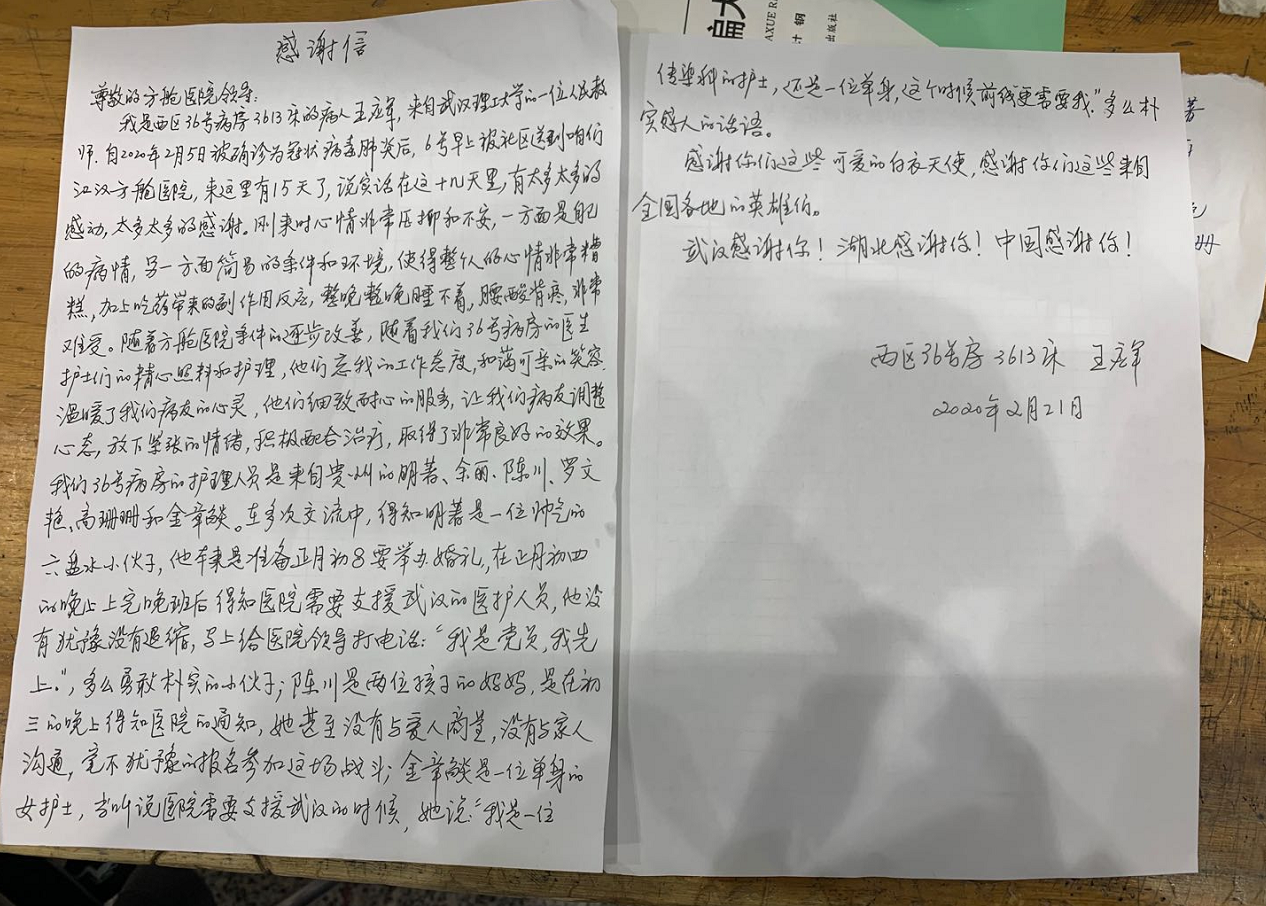 感谢信
尊敬的方舱医院领导:
我是西区36号病房3613床的病人王应军,来自武汉理工大学的一位人民教
师。自2020年2月5日被确诊为冠状病毒肺炎后,6号早上被社区送到咱们
江汉方舱医院,来这里有15天了,说实话在这十几天里,有太多太多的
感动,太多太多的感谢。刚来时心情非常压抑和不安,一方面是自己
的病情,另一方面简易的条件和环境,使得整个人的心情非常糟
糕,加上吃药带来的副作用反应,整晚整晚睡不着,腰酸背疼,非常
难受。随着方舱医院条件的逐步改善,随着我们36号病房的医生
护士们的精心照料和护理,他们忘我的工作态度,和蔼可亲的笑容,
温暖了我们病友的心灵,他们细致耐心的服务,让我们病友调整
心态,放下紧张的情绪,积极配合治疗,取得了非常良好的效果。
我们36号病房的护理人员是来自贵州的明著、余丽、陈川、罗文
艳、高珊珊和金章。在多次交流中,得知明著是一位帅气的
六盘水小伙子,他本来是准备正月初8要举办婚礼,在正月初四
的晚上上完晚班后得知医院需要支援武汉的医护人员,他没
有犹豫没有退缩,马上给医院领导打电话:“我是党员,我先
上。”,多么勇敢朴实的小伙子;陈川是两位孩子的妈妈,是在初
三的晚上得知医院的通知,她甚至没有与爱人商量,没有与家人
沟通,毫不犹豫的报名参加这场战斗;金章是一位单身的
女护士,当听说医院需要支援武汉的时候,她说:“我是一位
传染科的护士,还是一位单身,这个时候前线更需要我。”多么朴
实感人的话语。
感谢你们这些可爱的白衣天使,感谢你们这些来自
全国各地的英雄们。
武汉感谢你!湖北感谢你!中国感谢你!
西区36号房3613床 王应军
2020年2月21日
AXUE
计 钢
出版社